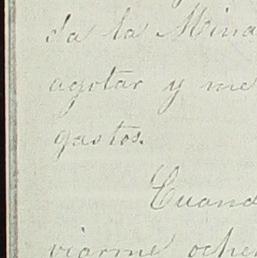 da la Mina
agotar y me
gastos.
Cuand
viarme oche